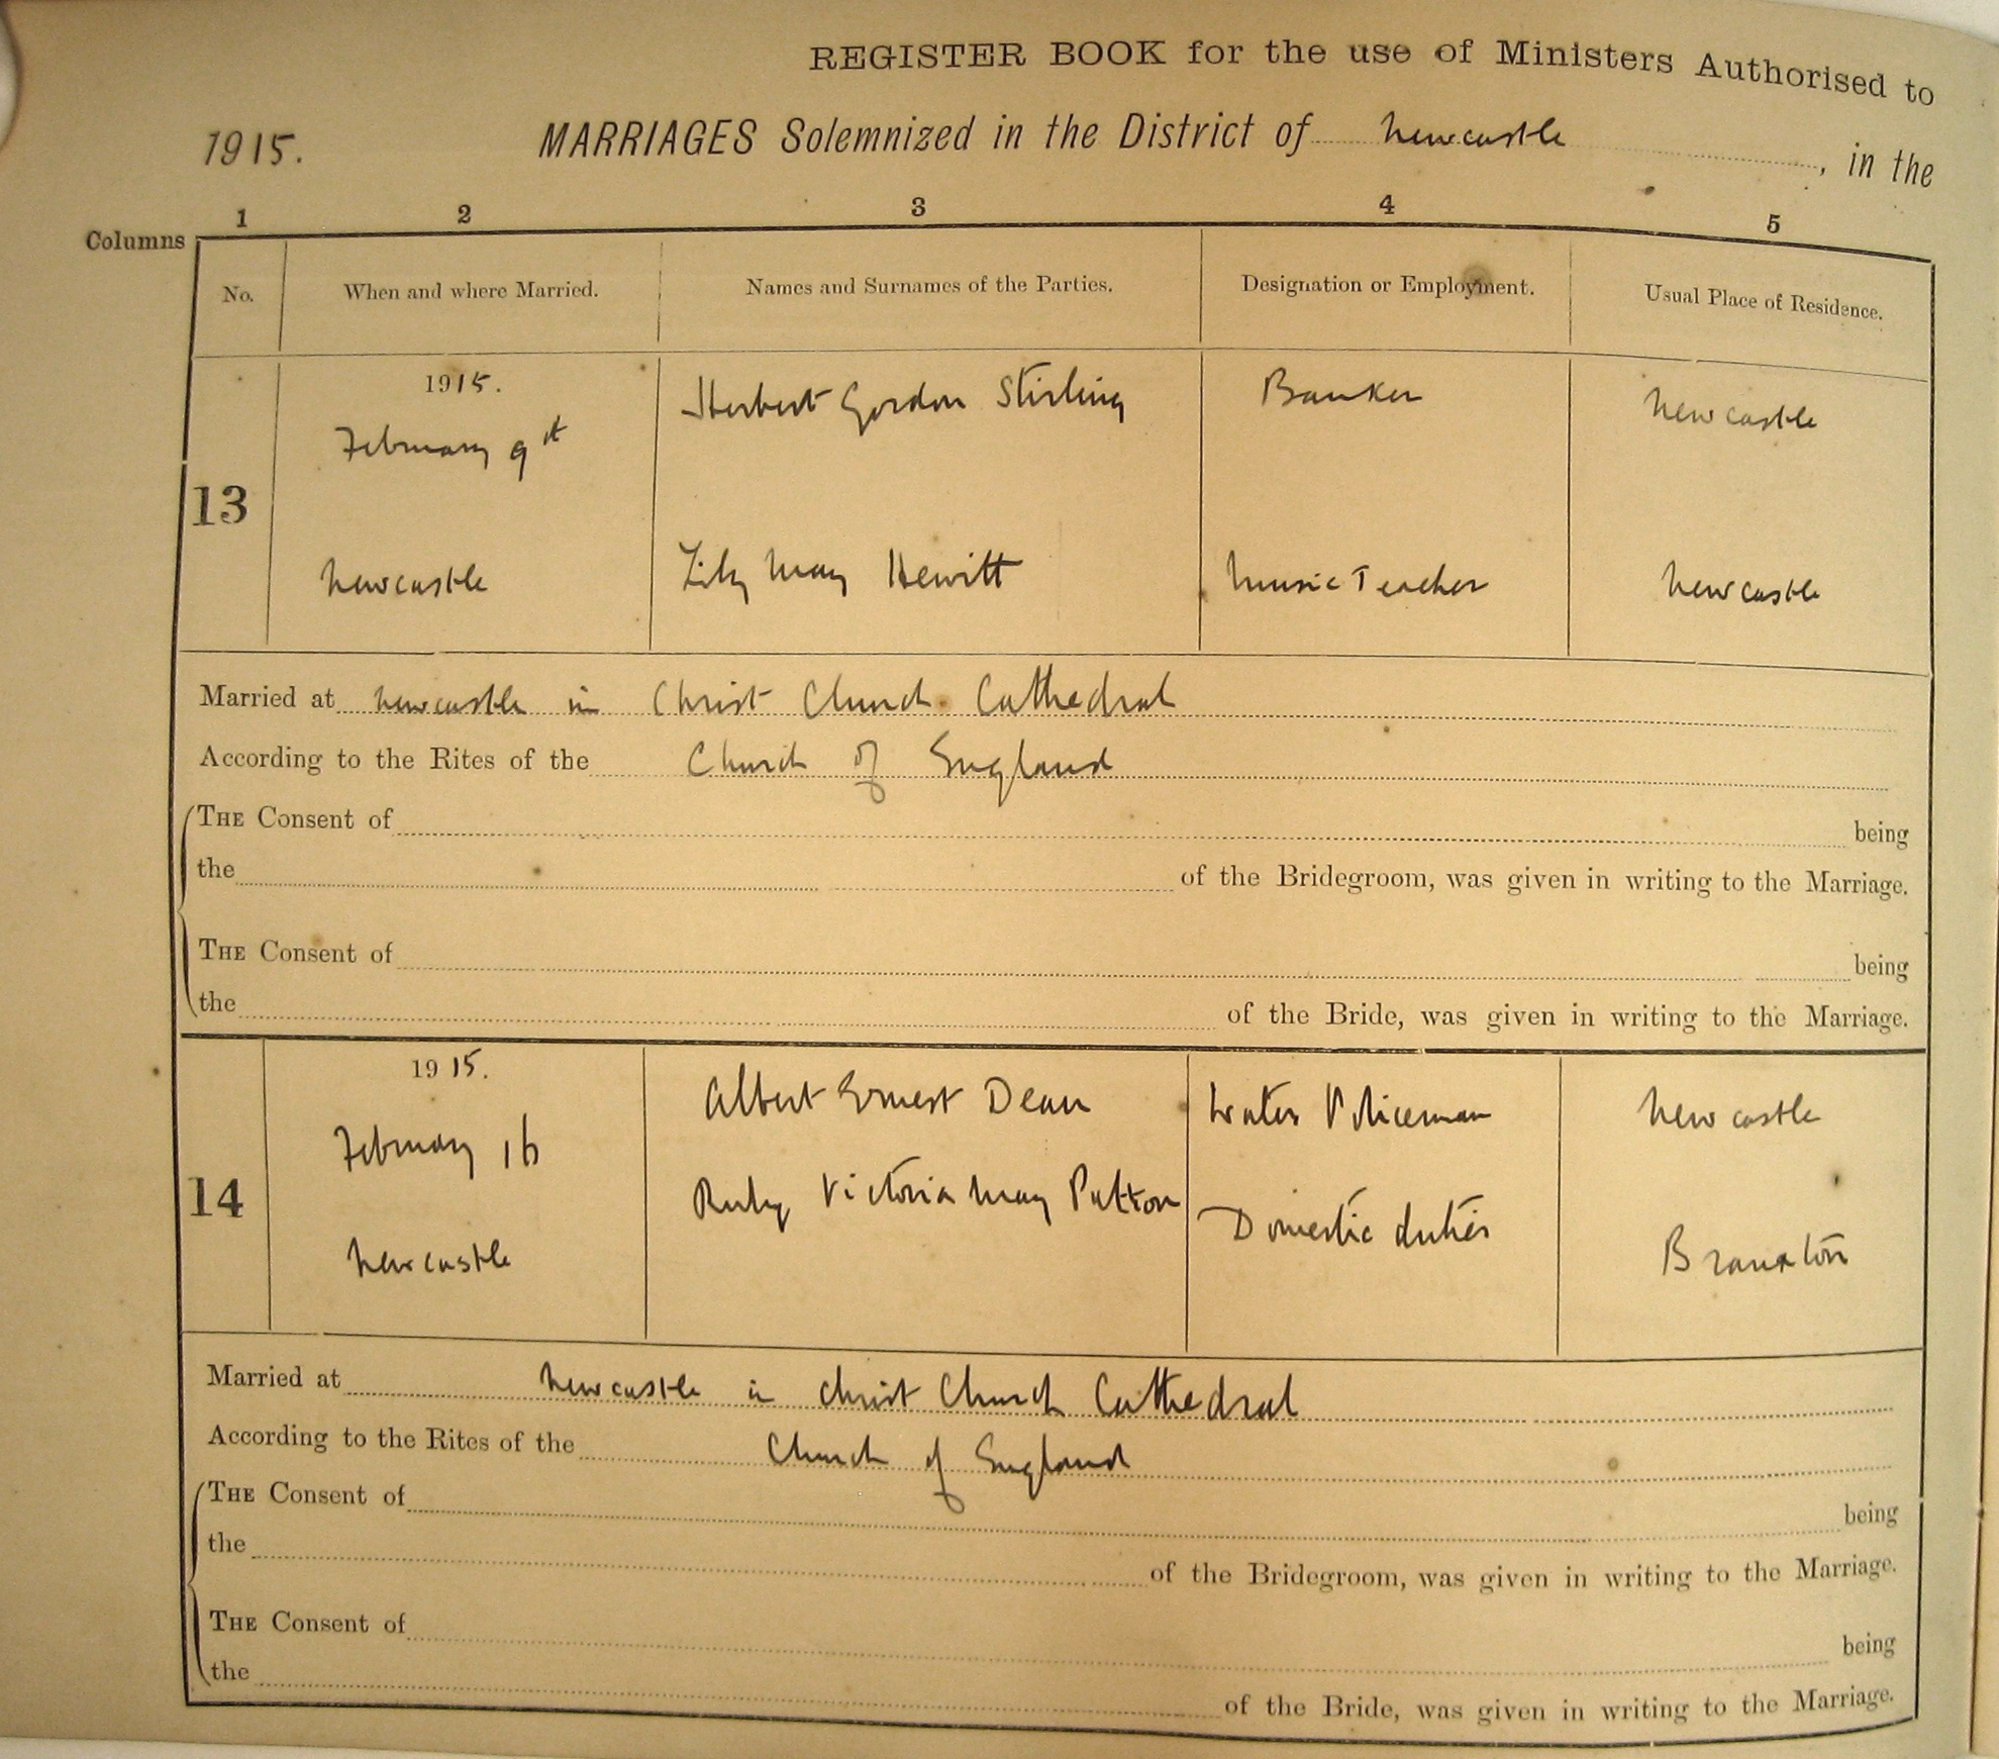 REGISTER BOOK for the use of Ministers Authorised to
1915. MARRIAGES Solemnized in the District of Newcastle, in the
Columns 1 2 3 4 5
No. When and where Married. Names and Surnames of the Parties. Designation or Employment. Usual Place of Residence.
1915. Herbert Gordon Stirling Banker Newcastle
February 9th
13
Newcastle Lily May Hewitt Music Teacher Newcastle
Married at Newcastle in Christ Church Cathedral
According to the Rites of the Church of England
THE Consent of being
the of the Bridegroom, was given in writing to the Marriage.
THE Consent of being
the of the Bride, was given in writing to the Marriage.
1915. Albert Ernest Dean Water Policeman Newcastle
February 16
14 Ruby Victoria May Patton Domestic duties Branxton
Newcastle
Married at Newcastle in Christ Church Cathedral
According to the Rites of the Church of England
THE Consent of being
the of the Bridegroom, was given in writing to the Marriage.
THE Consent of being
the of the Bride, was given in writing to the Marriage.